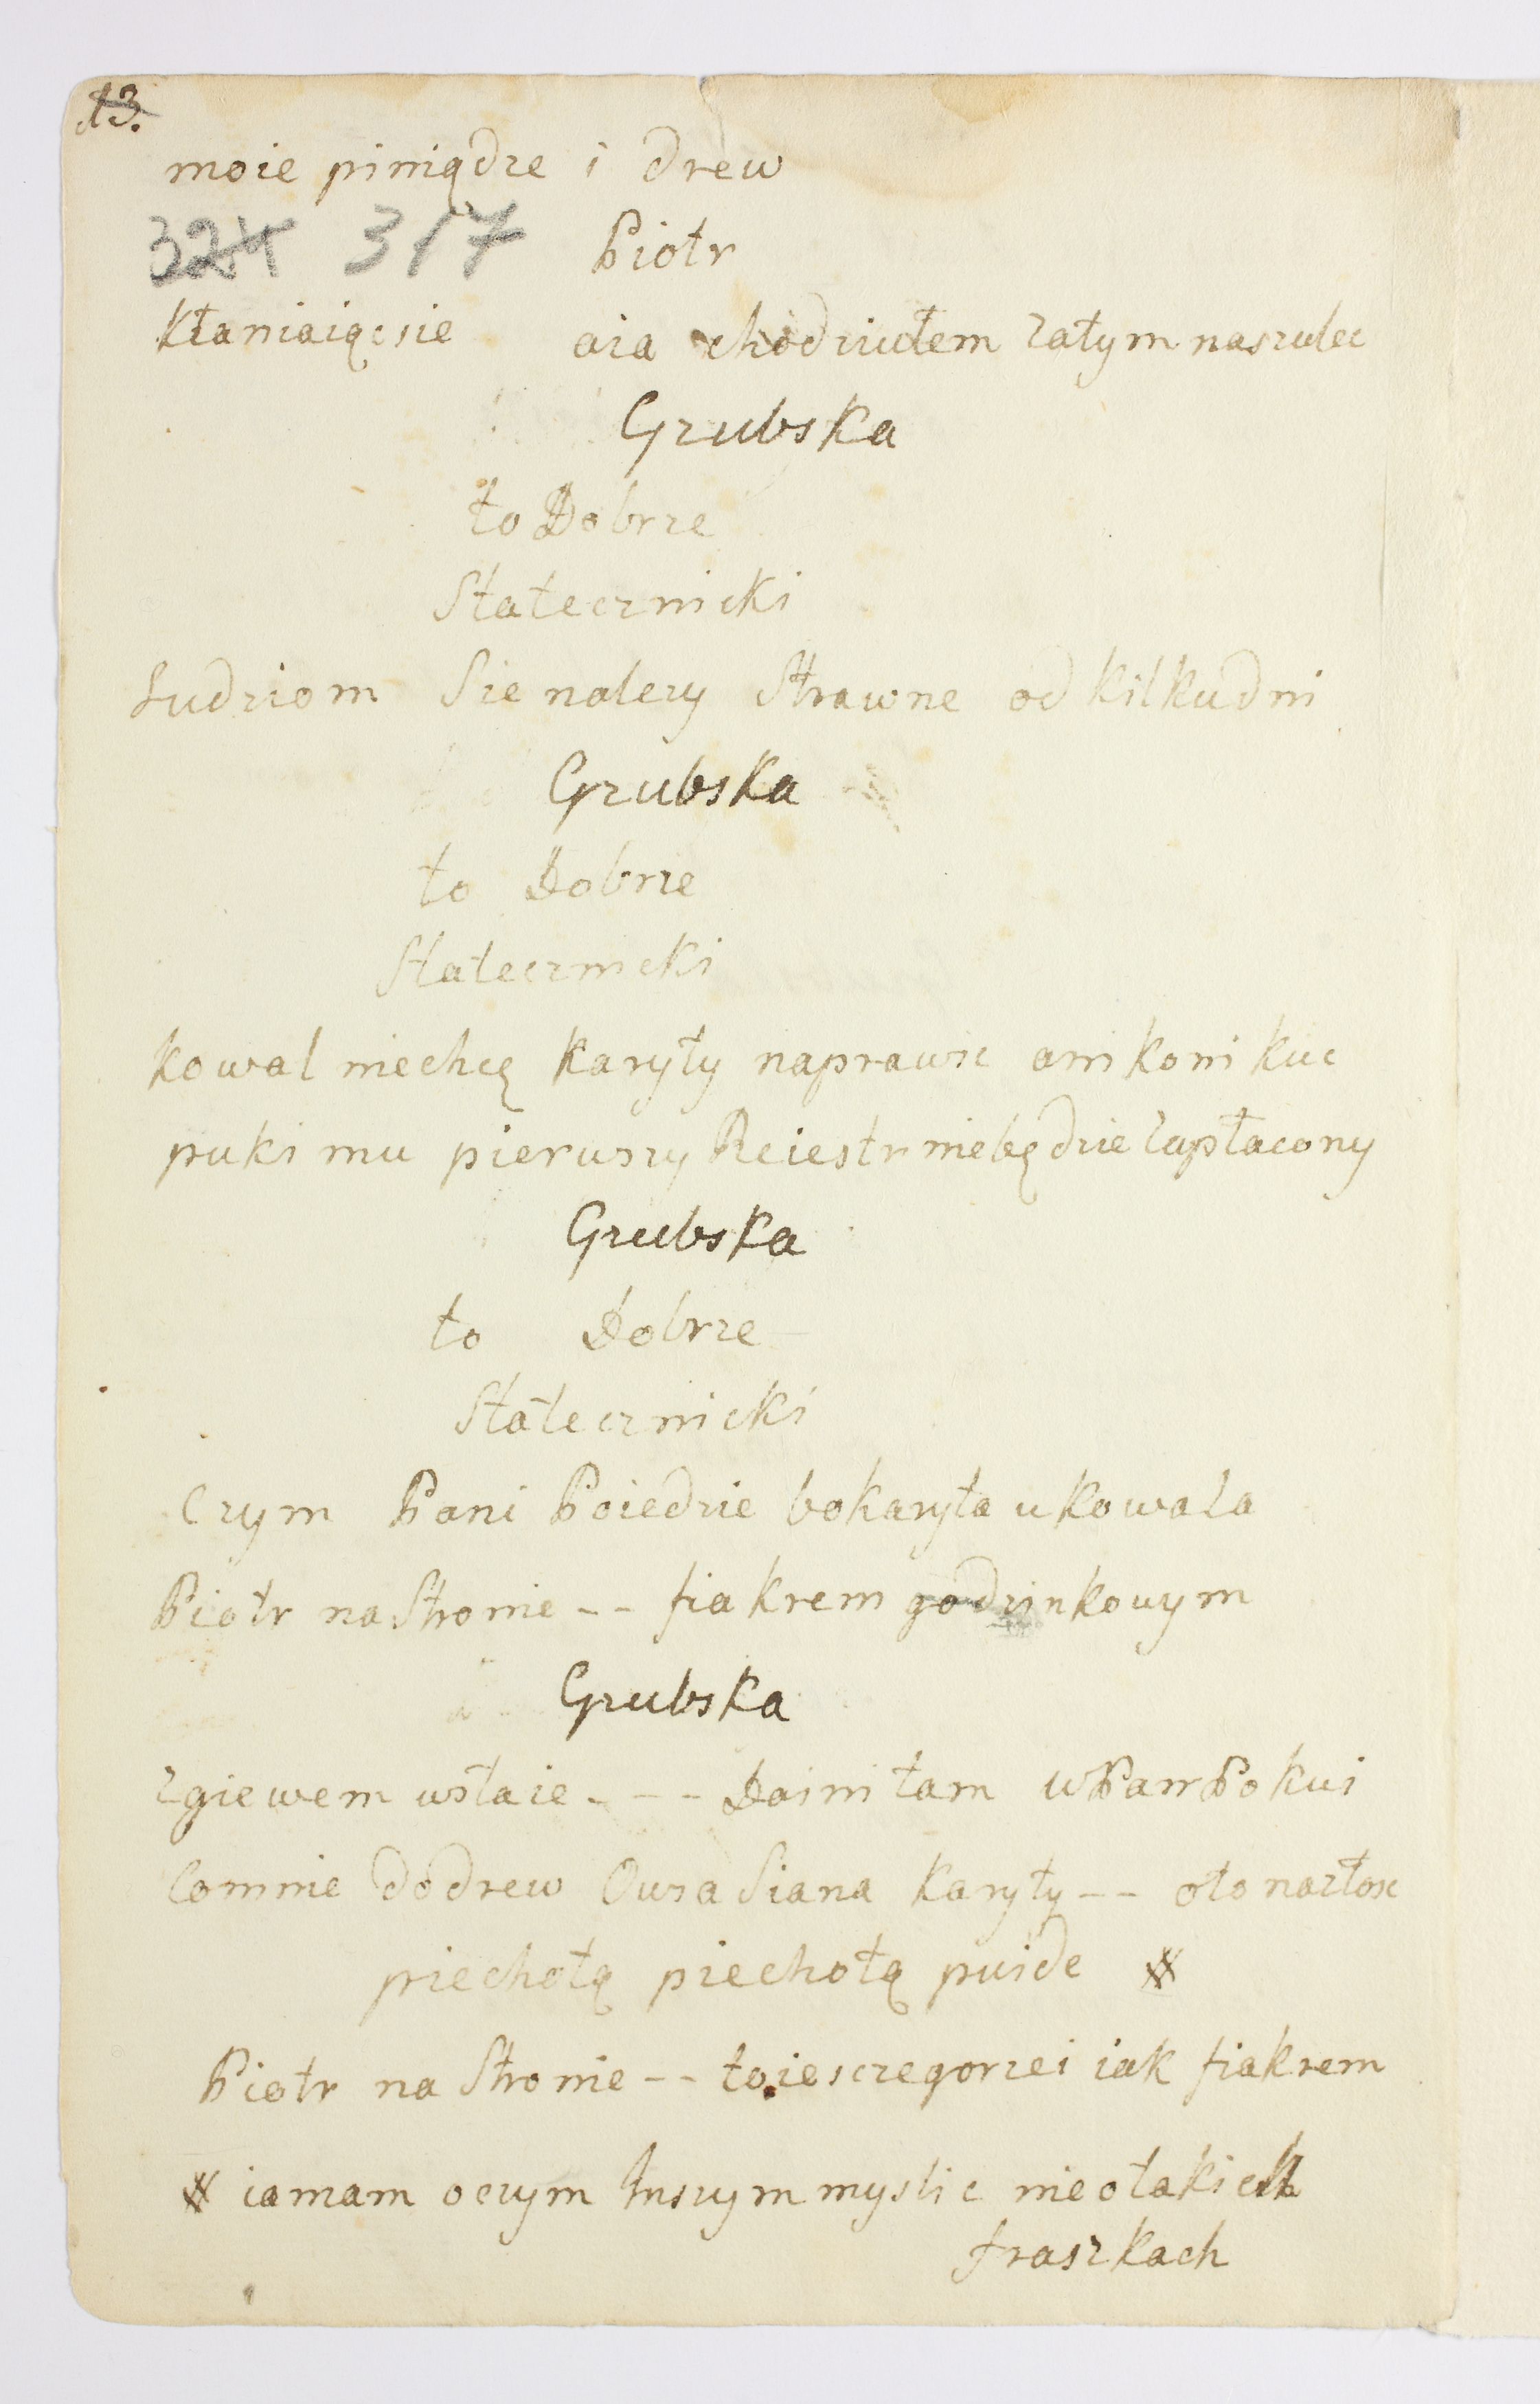 13.
moie piniądze i drew
324 317 Piotr
kłaniaiąc sie aia chodziułem zatym naszulec
Grubska
to Dobrze
Statecznicki
Ludziom Sie nalezy Strawne od kilkudni
Grubska
to Dobrze
Statecznicki
kowal niechcę karyty naprawic ani koni kuc
puki mu pierwszy Reiestr niebędzie zapłacony
Grubska
to Dobrze
Statecznicki
Czym Pani Poiedzie bokaryta ukowala
Piotr na Stronie -- fiakrem godzinkowym
Grubska
zgiewem wstaie --- Daini tam wPani Pokui
Comnie do drew Owsa Siana karyty -- oto nazłosc
piechotą piechotą puide #
Piotr na Stronie -- toiesczegorzei iak fiakrem
# iamam oczym Inszym myslic nieotakich
fraszkach